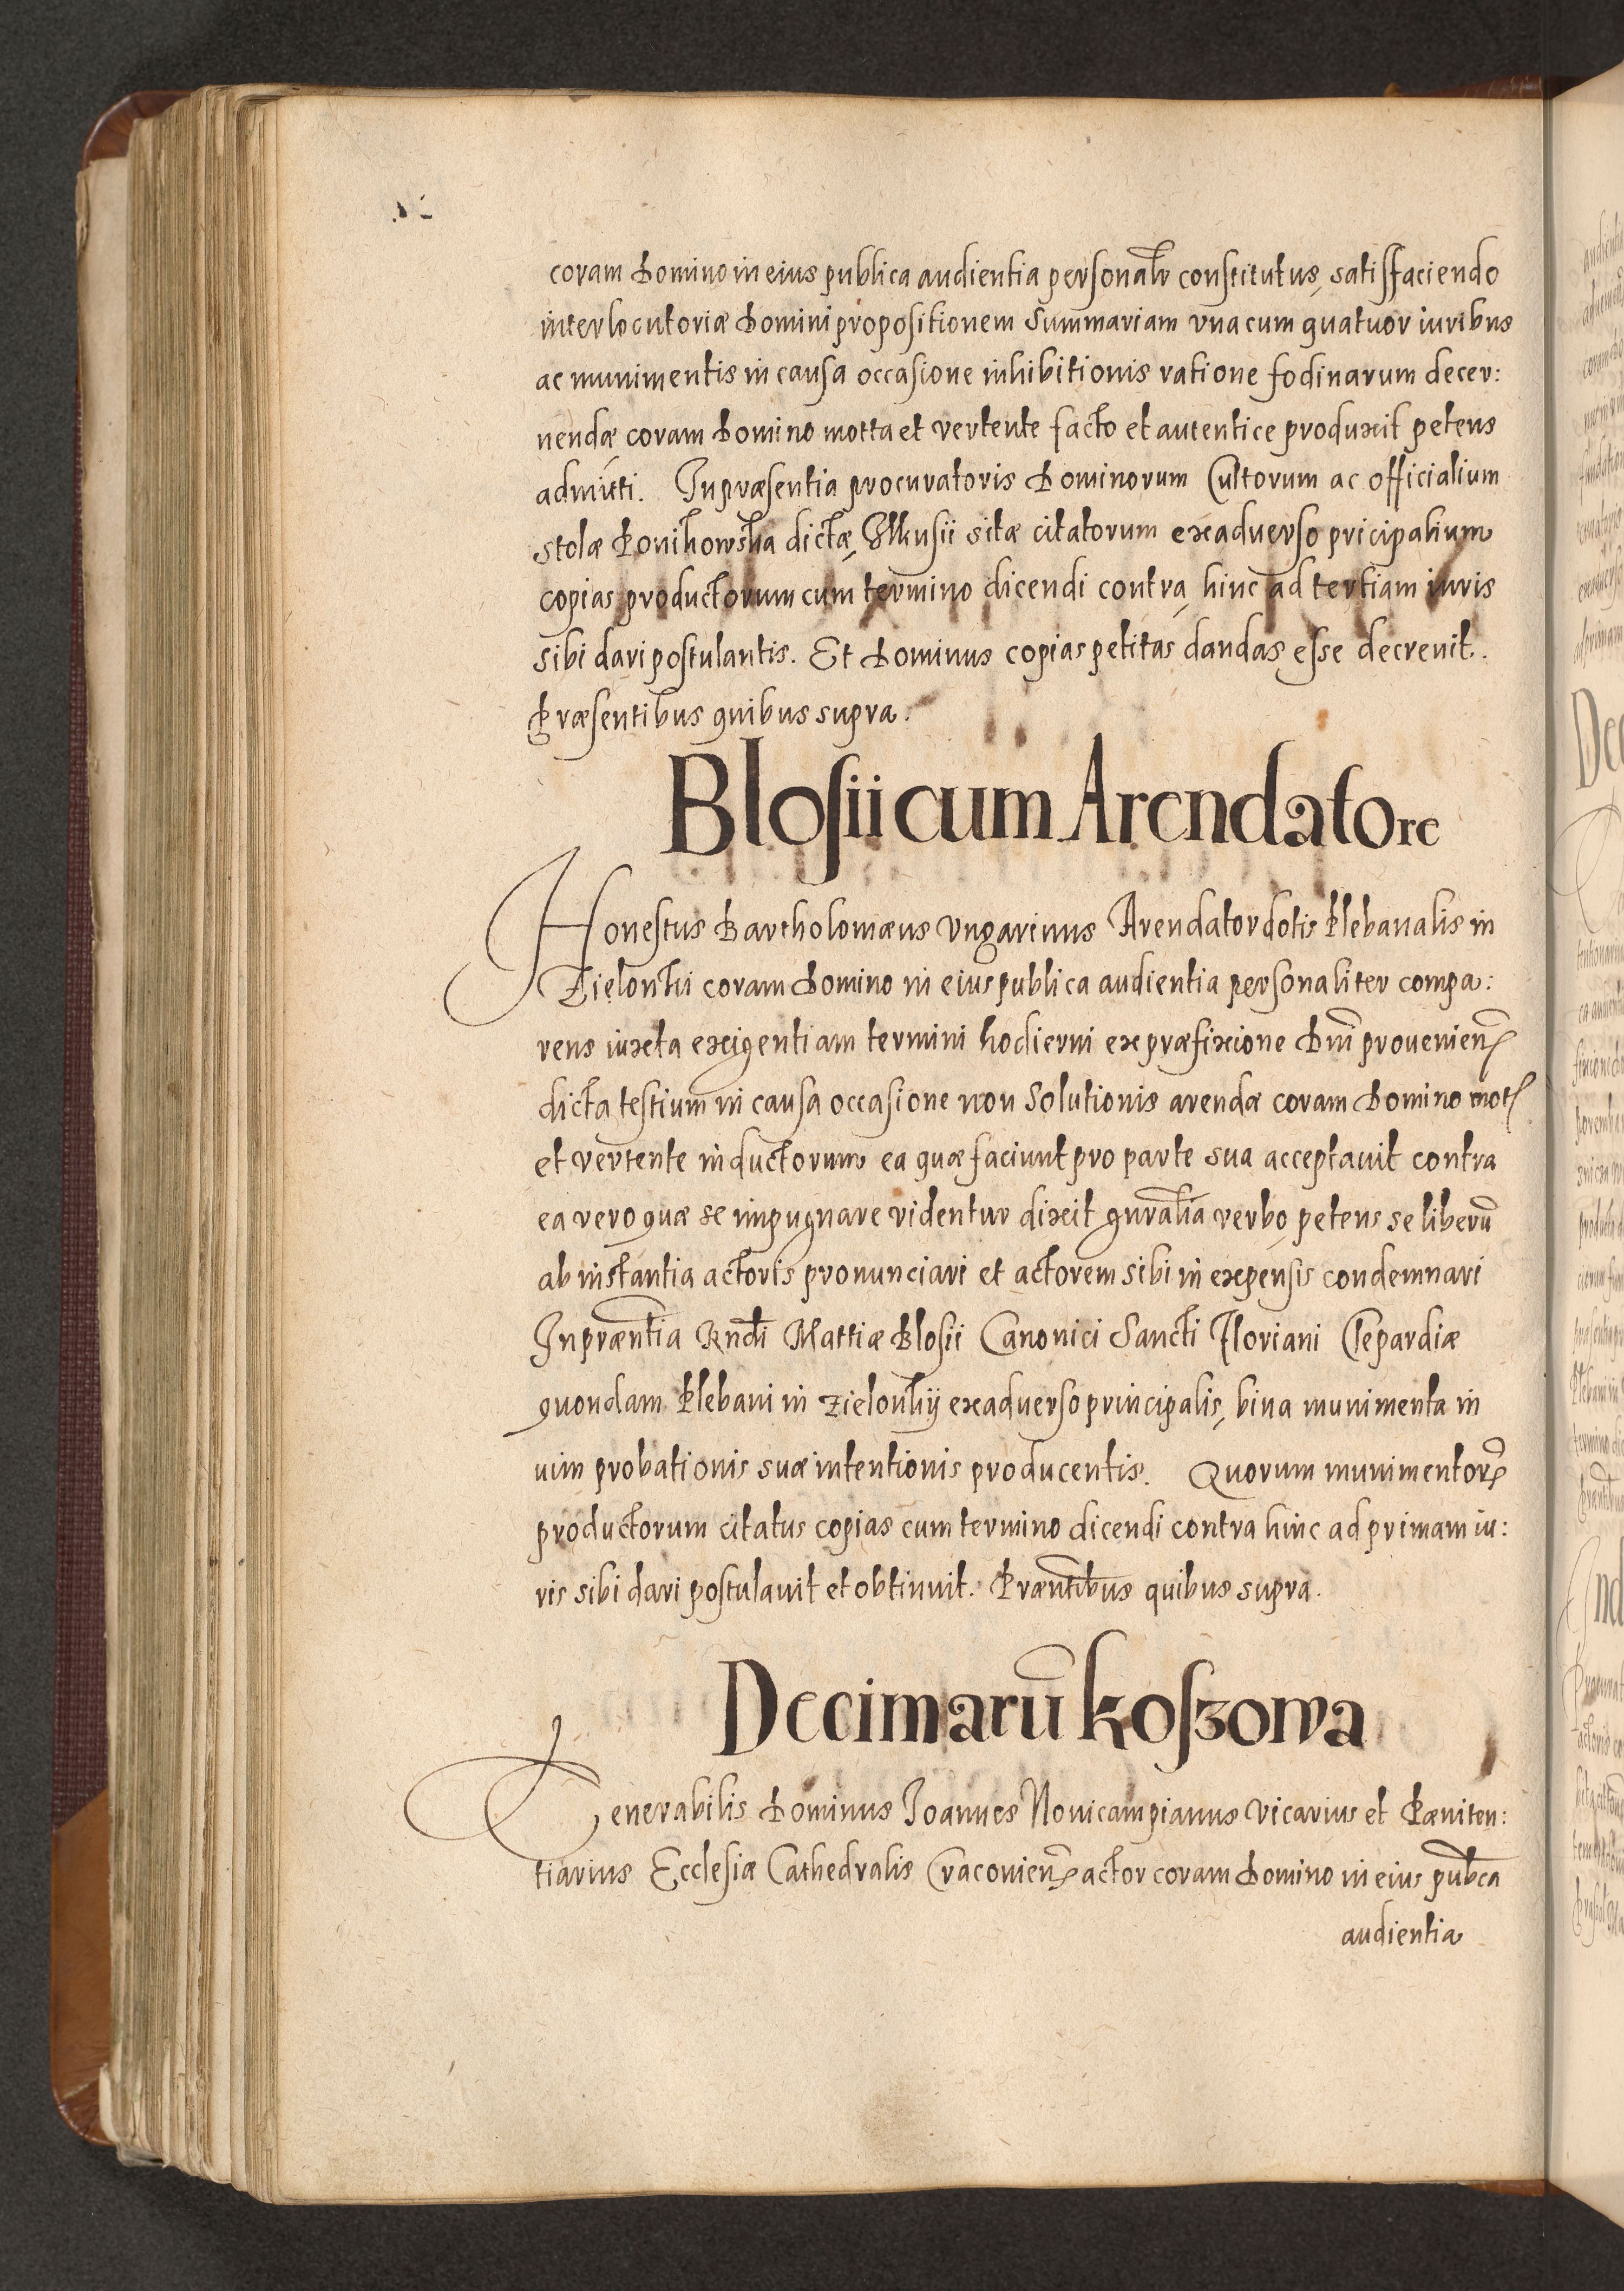 coram Domino in eius publica audientia personalr constitutus, satisfaciendo
interlocutoriæ Domini propositionem Summariam vna cum quatuor iuribus
ac munimentis in causa occasione inhibitionis ratione fodinarum decer:
nendæ coram Domino motta et vertente facto et autentice produxit petens
admitti. In præsentia procuratoris Dominorum Cultorum ac officialium
stolæ Ponikowska dictæ, Ilkusii sitæ citatorum exaduerso pricipalium
copias productorum cum termino dicendi contra, hinc ad tertiam iuris
sibi dari postulantis. Et Dominus copias petitas dandas esse decreuit.
Præsentibus quibus supra.
Blosii cum Arendatore
Honestus Bartholomæus Vngarinus Arendator dotis Plebanalis in
Zielonki coram Domino in eius publica audientia personaliter compa:
rens iuxta exigentiam termini hodierni ex præfixione Dni prouenien
dicta testium in causa occasione non Solutionis arendæ coram Domino mot
et vertente inductorum ea quæ faciunt pro parte sua acceptauit contra
ea vero quæ se impugnare videntur dixit gnralia verbo, petens se liberū
ab instantia actoris pronunciari et actorem sibi in expensis condemnari
In præntia Rndi Mattiæ Blosii Canonici Sancti Floriani Clepardiæ
quondam Plebani in Zielonkij exaduerso principalis, bina munimenta in
uim probationis suæ intentionis producentis. Quorum munimentor
productorum citatus copias cum termino dicendi contra hinc ad primam iu:
ris sibi dari postulauit et obtinuit. Præntibus quibus supra.
Decimarū Koszowa
Venerabilis Dominus Ioannes Nouicampianus Vicarius et Pæniten:
tiarius Ecclesiæ Cathedralis Cracouien actor coram Domino in eius pubca
audientia